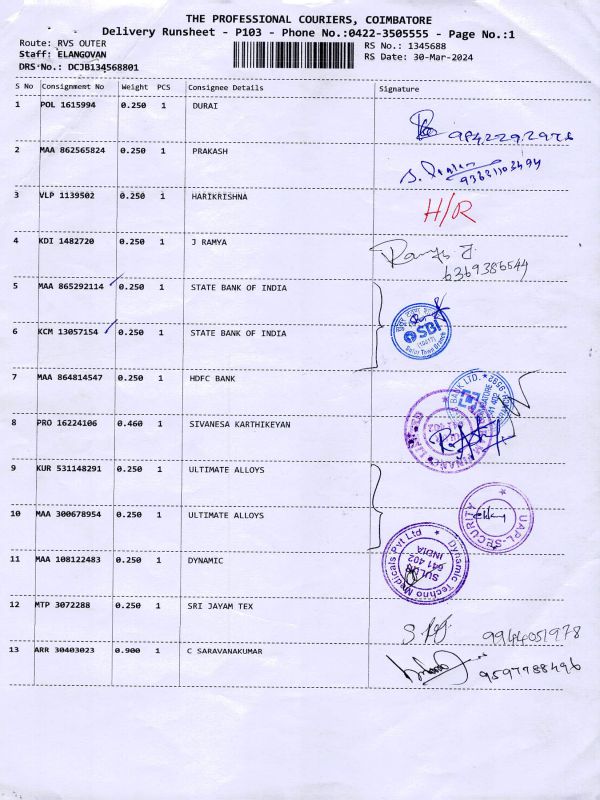 THE PROFESSIONAL COURIERS, COIMBATORE
Delivery Runsheet - P103 - Phone No.:0422-3505555 - Page No.:1
Route: RVS OUTER
RS No.: 1345688
Staff: ELANGOVAN
RS Date: 30-Mar-2024
DRS No.: DCJB134568801
S No Consignment No Weight PCS Consignee Details Signature
1 POL 1615994 0.250 1 DURAI
9842292976
2 MAA 862565824 0.250 1 PRAKASH
93631103494
3 VLP 1139502 0.250 1 HARIKRISHNA H/R
4 KDI 1482720 0.250 1 J RAMYA
6369386544
5 MAA 865292114 0.250 1 STATE BANK OF INDIA
SBI
6 KCM 13057154 0.250 1 STATE BANK OF INDIA
7 MAA 864814547 0.250 1 HDFC BANK
BANK LTD.
8 PRO 16224106 0.460 1 SIVANESA KARTHIKEYAN
9 KUR 531148291 0.250 1 ULTIMATE ALLOYS
10 MAA 300678954 0.250 1 ULTIMATE ALLOYS
UAPL-SECURITY
11 MAA 108122483 0.250 1 DYNAMIC
Dynamic Techno Medicals Pvt Ltd
SULUR
641 402
INDIA
12 MTP 3072288 0.250 1 SRI JAYAM TEX
9944051978
13 ARR 30403023 0.900 1 C SARAVANAKUMAR
9597788496